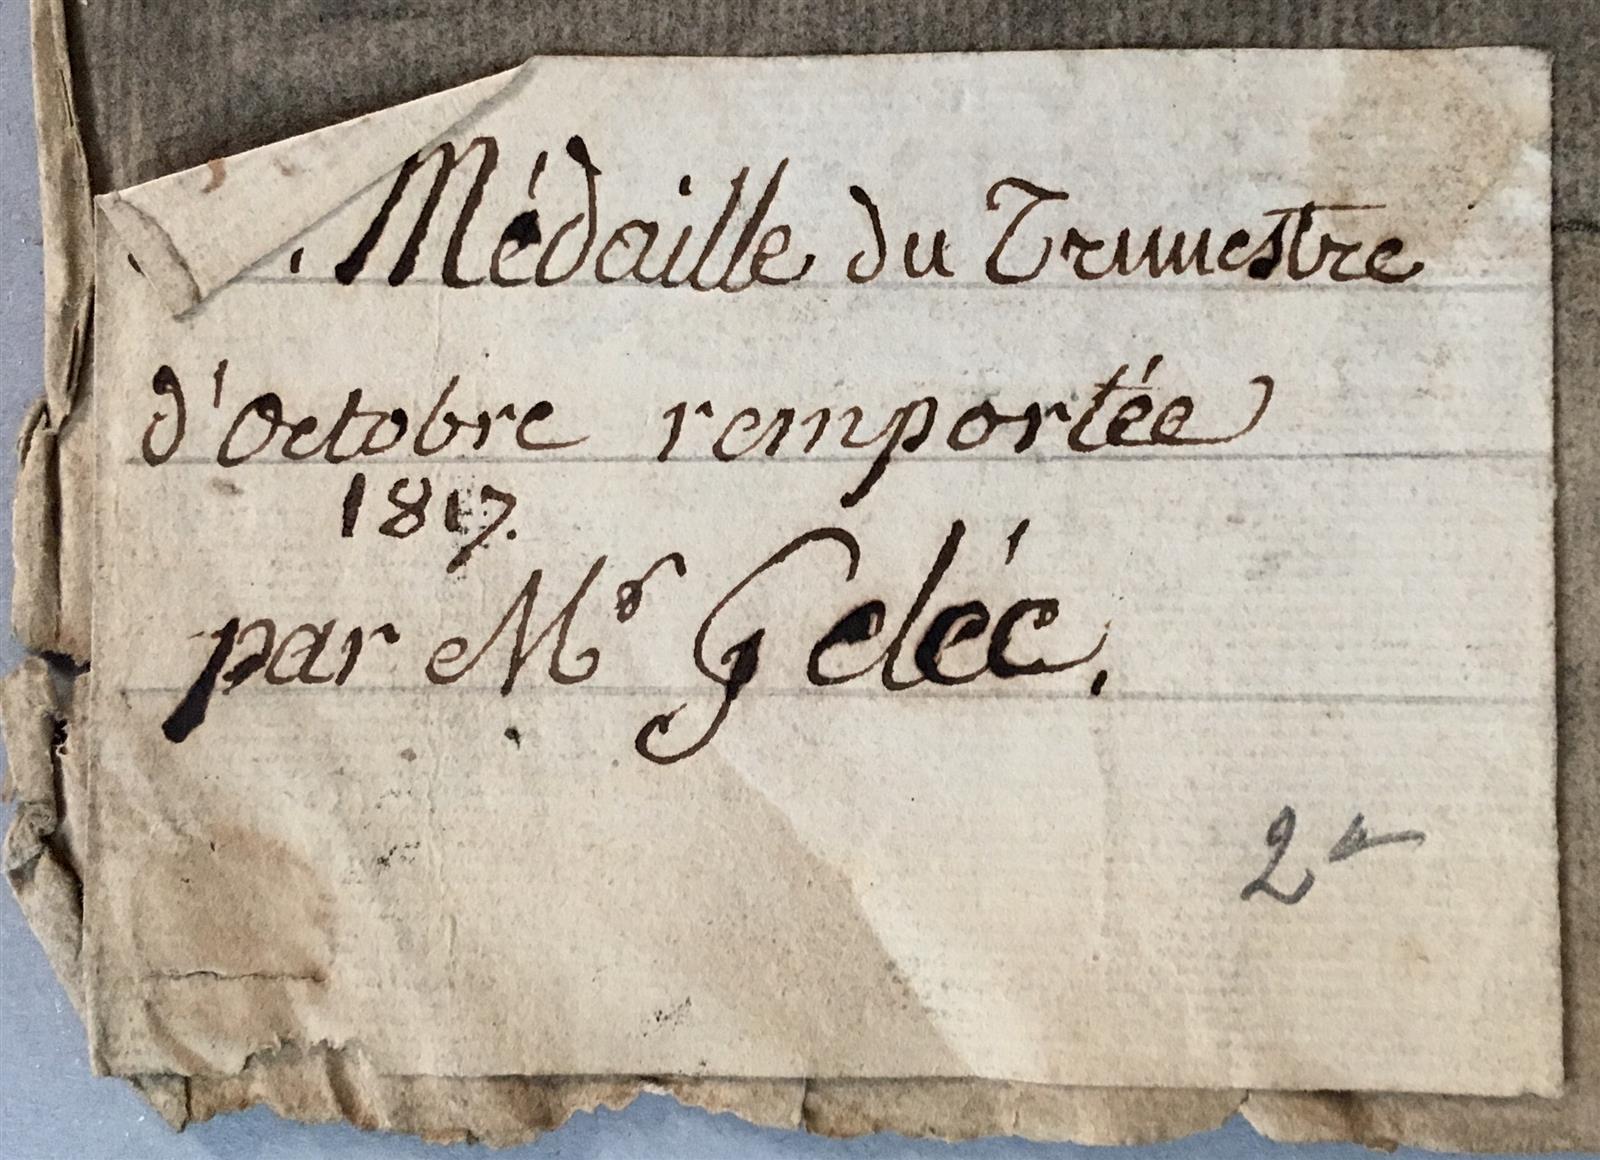 Médaille du Trimestre
d'Octobre remportée
1817.
par Mr Gelée.
2e